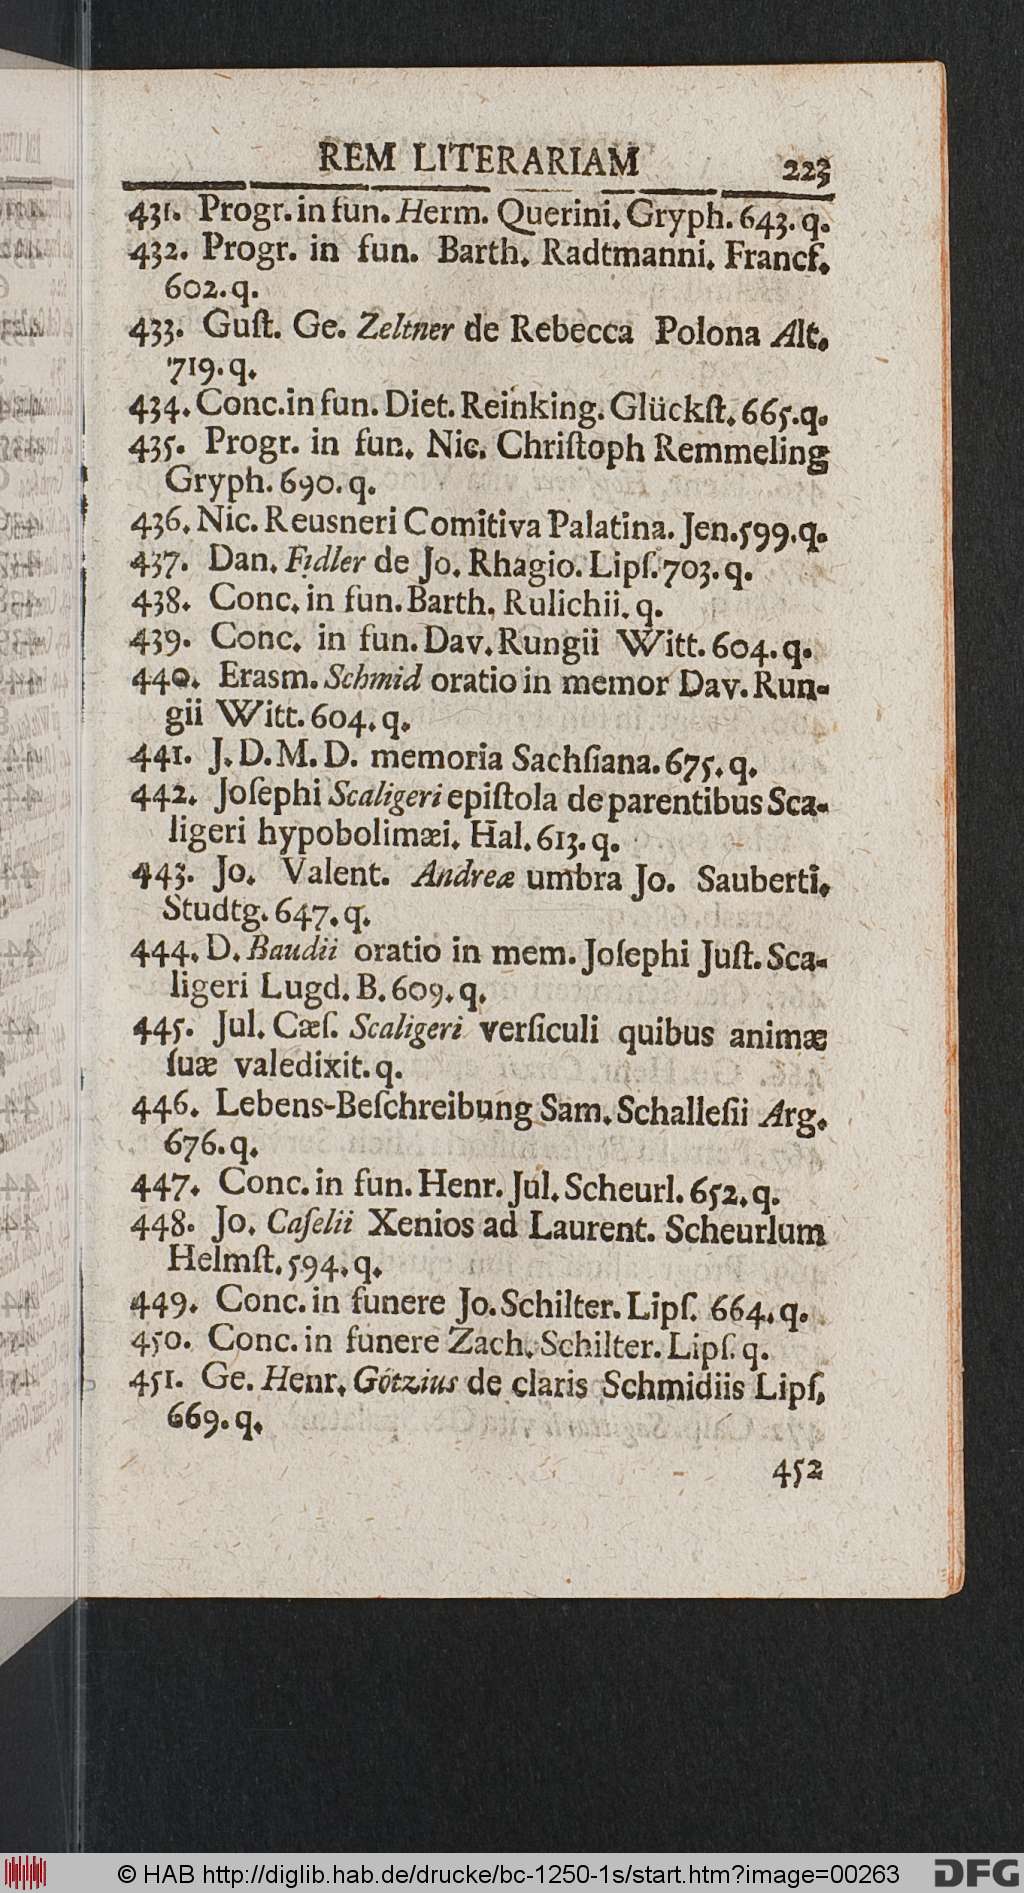 REM LITERARIAM 223
431. Progr. in fun. Herm. Querini. Gryph. 643. q.
432. Progr. in fun. Barth. Radtmanni. Francf.
602. q.
433. Guſt. Ge. Zeltner de Rebecca Polona Alt.
719. q.
434. Conc. in fun. Diet. Reinking. Glückſt. 665. q.
435. Progr. in fun. Nic. Chriſtoph Remmeling
Gryph. 690. q.
436. Nic. Reusneri Comitiva Palatina. Jen. 599. q.
437. Dan. Fidler de Jo. Rhagio. Lipſ. 703. q.
438. Conc. in fun. Barth. Rulichii. q.
439. Conc. in fun. Dav. Rungii Witt. 604. q.
440. Eraſm. Schmid oratio in memor Dav. Run-
gii Witt. 604. q.
441. J. D. M. D. memoria Sachſiana. 675. q.
442. Joſephi Scaligeri epiſtola de parentibus Sca-
ligeri hypobolimæi. Hal. 613. q.
443. Jo. Valent. Andreæ umbra Jo. Sauberti.
Studtg. 647. q.
444. D. Baudii oratio in mem. Joſephi Juſt. Sca-
ligeri Lugd. B. 609. q.
445. Jul. Cæſ. Scaligeri verſiculi quibus animæ
ſuæ valedixit. q.
446. Lebens-Beſchreibung Sam. Schalleſii Arg.
676. q.
447. Conc. in fun. Henr. Jul. Scheurl. 652. q.
448. Jo. Caſelii Xenios ad Laurent. Scheurlum
Helmſt. 594. q.
449. Conc. in funere Jo. Schilter. Lipſ. 664. q.
450. Conc. in funere Zach. Schilter. Lipſ. q.
451. Ge. Henr. Götzius de claris Schmidiis Lipſ.
669. q.
452
© HAB http://diglib.hab.de/drucke/bc-1250-1s/start.htm?image=00263 DFG